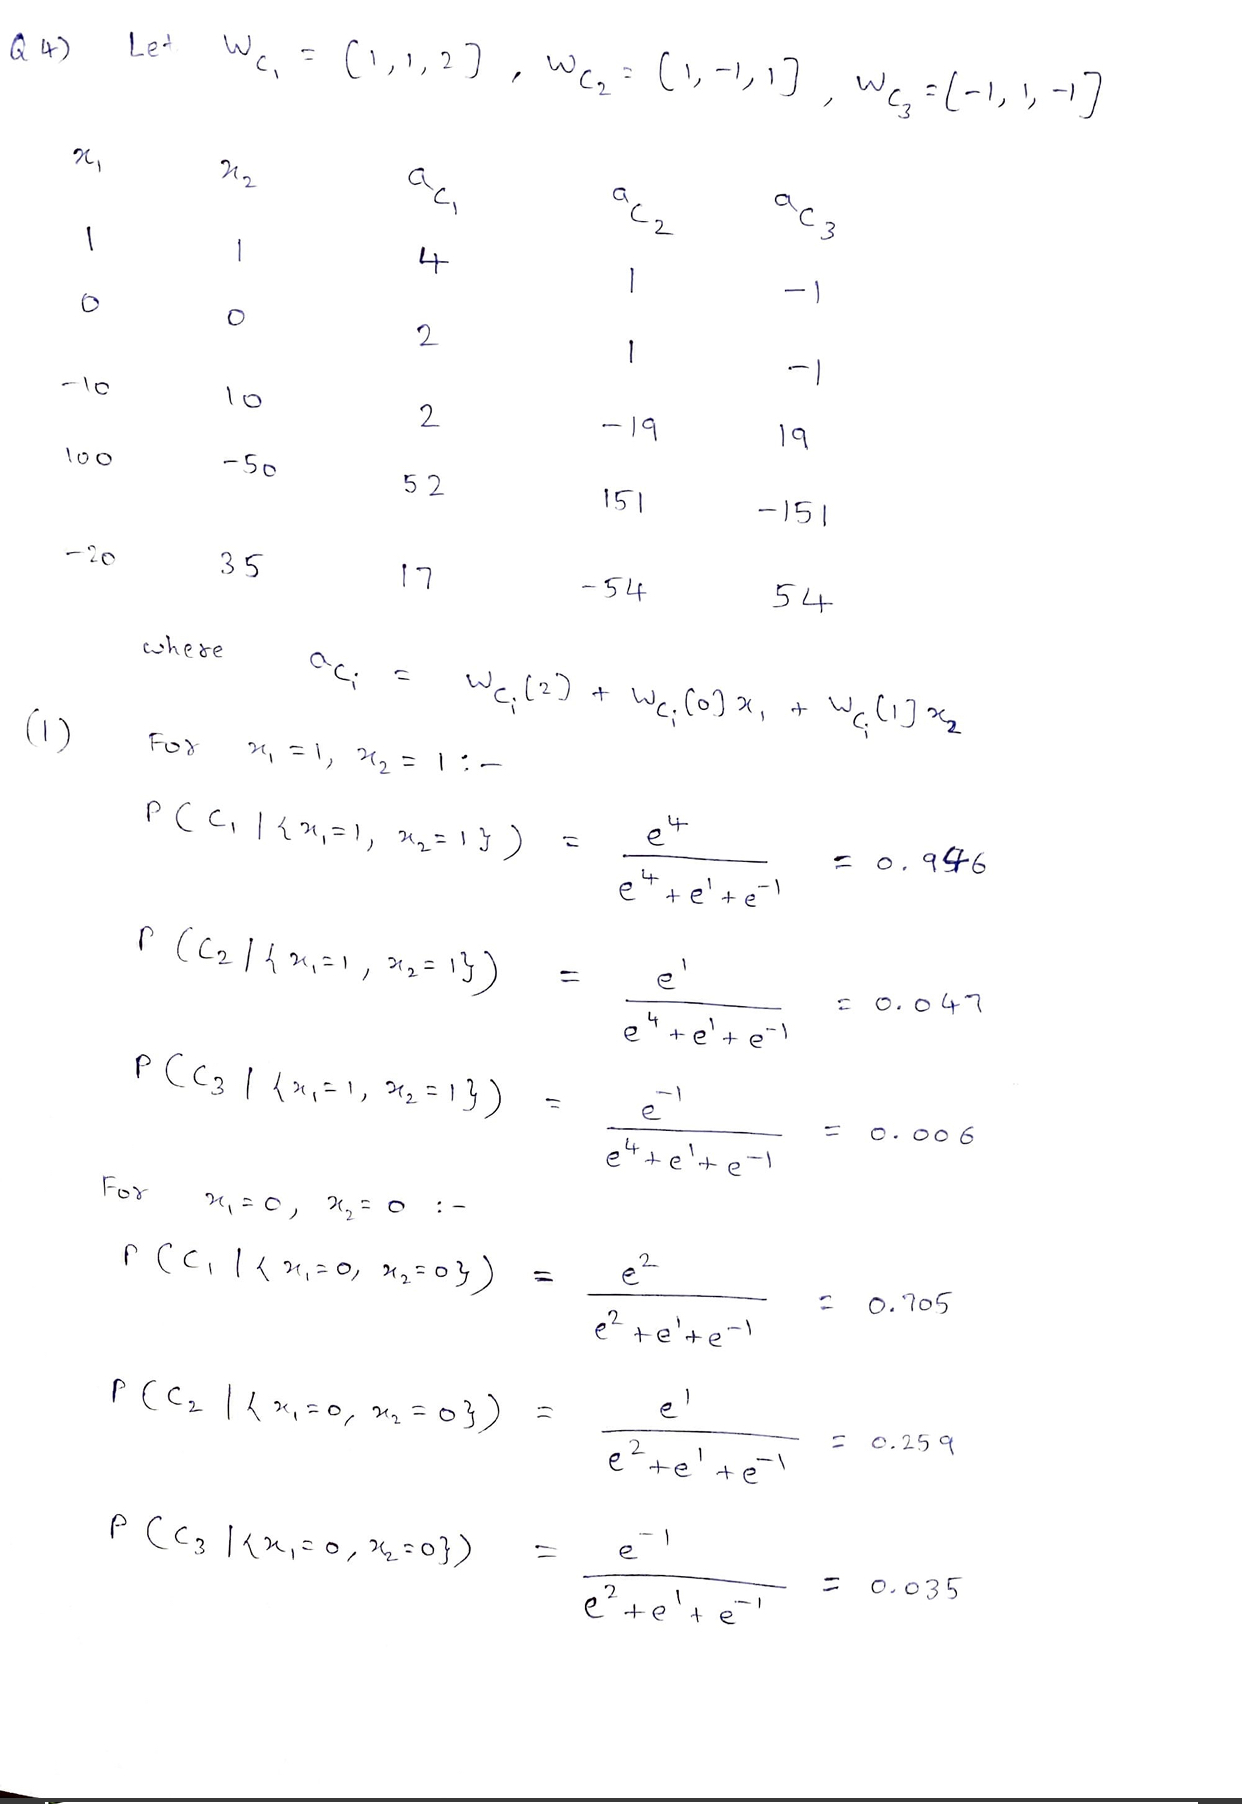 Q4) Let W_C₁ = [1, 1, 2], W_C₂ = [1, -1, 1], W_C₃ = [-1, 1, -1]
x₁ x₂ a_C₁ a_C₂ a_C₃
1 1 4 1 -1
0 0 2 1 -1
-10 10 2 -19 19
100 -50 52 151 -151
-20 35 17 -54 54
where a_Cᵢ = W_Cᵢ[2] + W_Cᵢ[0] x₁ + W_Cᵢ[1] x₂
(1) For x₁ = 1, x₂ = 1 :-
P(C₁ | {x₁=1, x₂=1}) = e⁴ / (e⁴ + e¹ + e⁻¹) = 0.946
P(C₂ | {x₁=1, x₂=1}) = e¹ / (e⁴ + e¹ + e⁻¹) = 0.047
P(C₃ | {x₁=1, x₂=1}) = e⁻¹ / (e⁴ + e¹ + e⁻¹) = 0.006
For x₁ = 0, x₂ = 0 :-
P(C₁ | {x₁=0, x₂=0}) = e² / (e² + e¹ + e⁻¹) = 0.705
P(C₂ | {x₁=0, x₂=0}) = e¹ / (e² + e¹ + e⁻¹) = 0.259
P(C₃ | {x₁=0, x₂=0}) = e⁻¹ / (e² + e¹ + e⁻¹) = 0.035